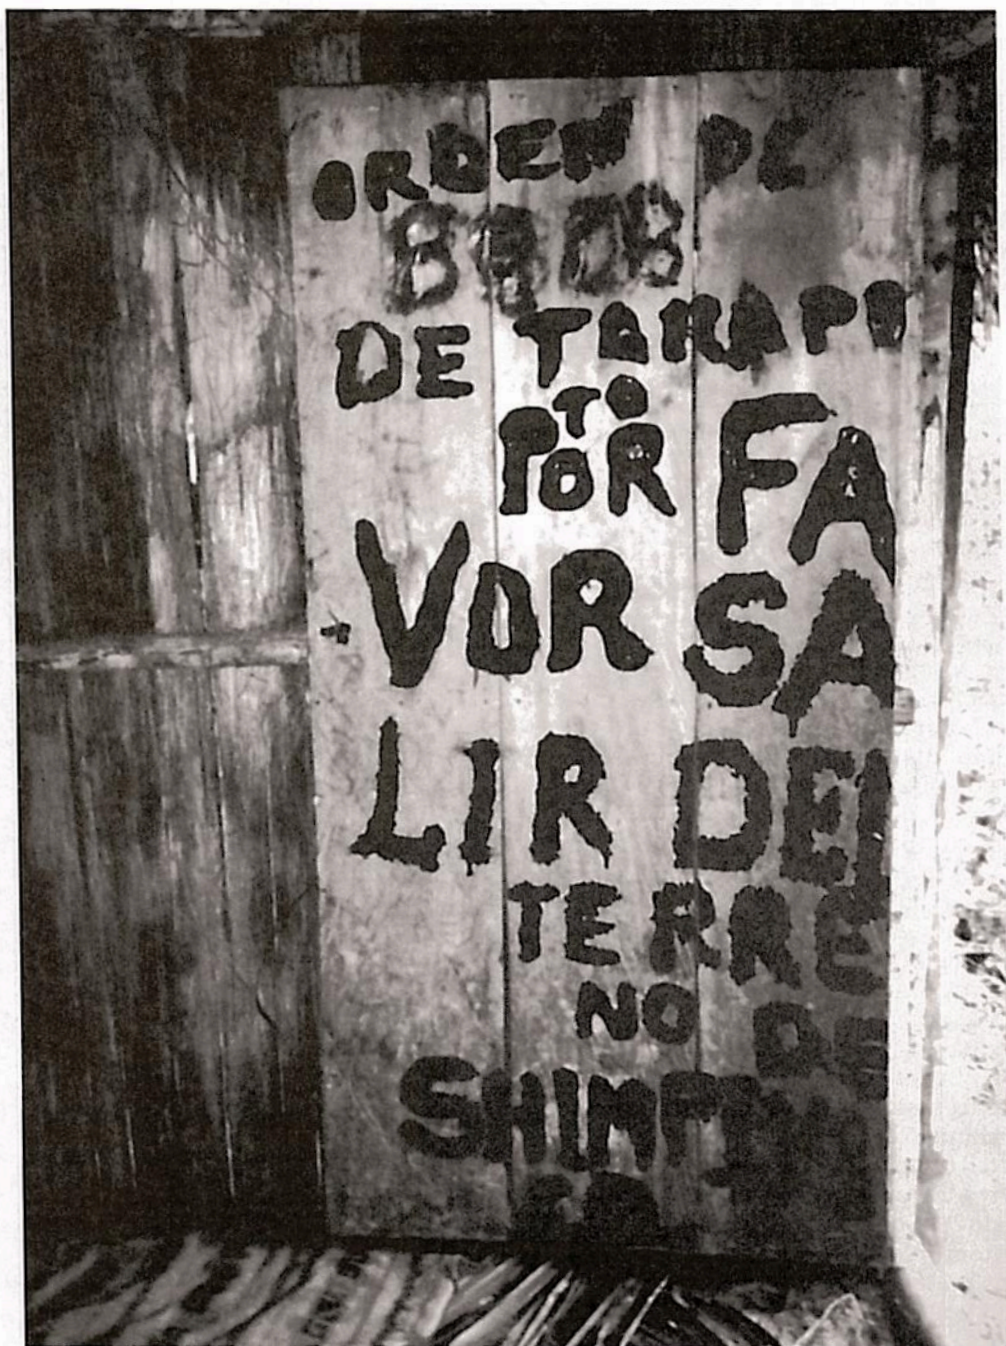 ORDEN DE
DE TARAPO
TO
POR FA
VOR SA
LIR DEL
TERRE
NO DE